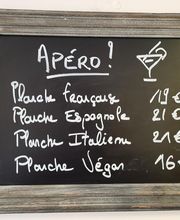 Apéro !
Planche française 19€
Planche Espagnole 21€
Planche Italienne 21€
Planche Végan 16